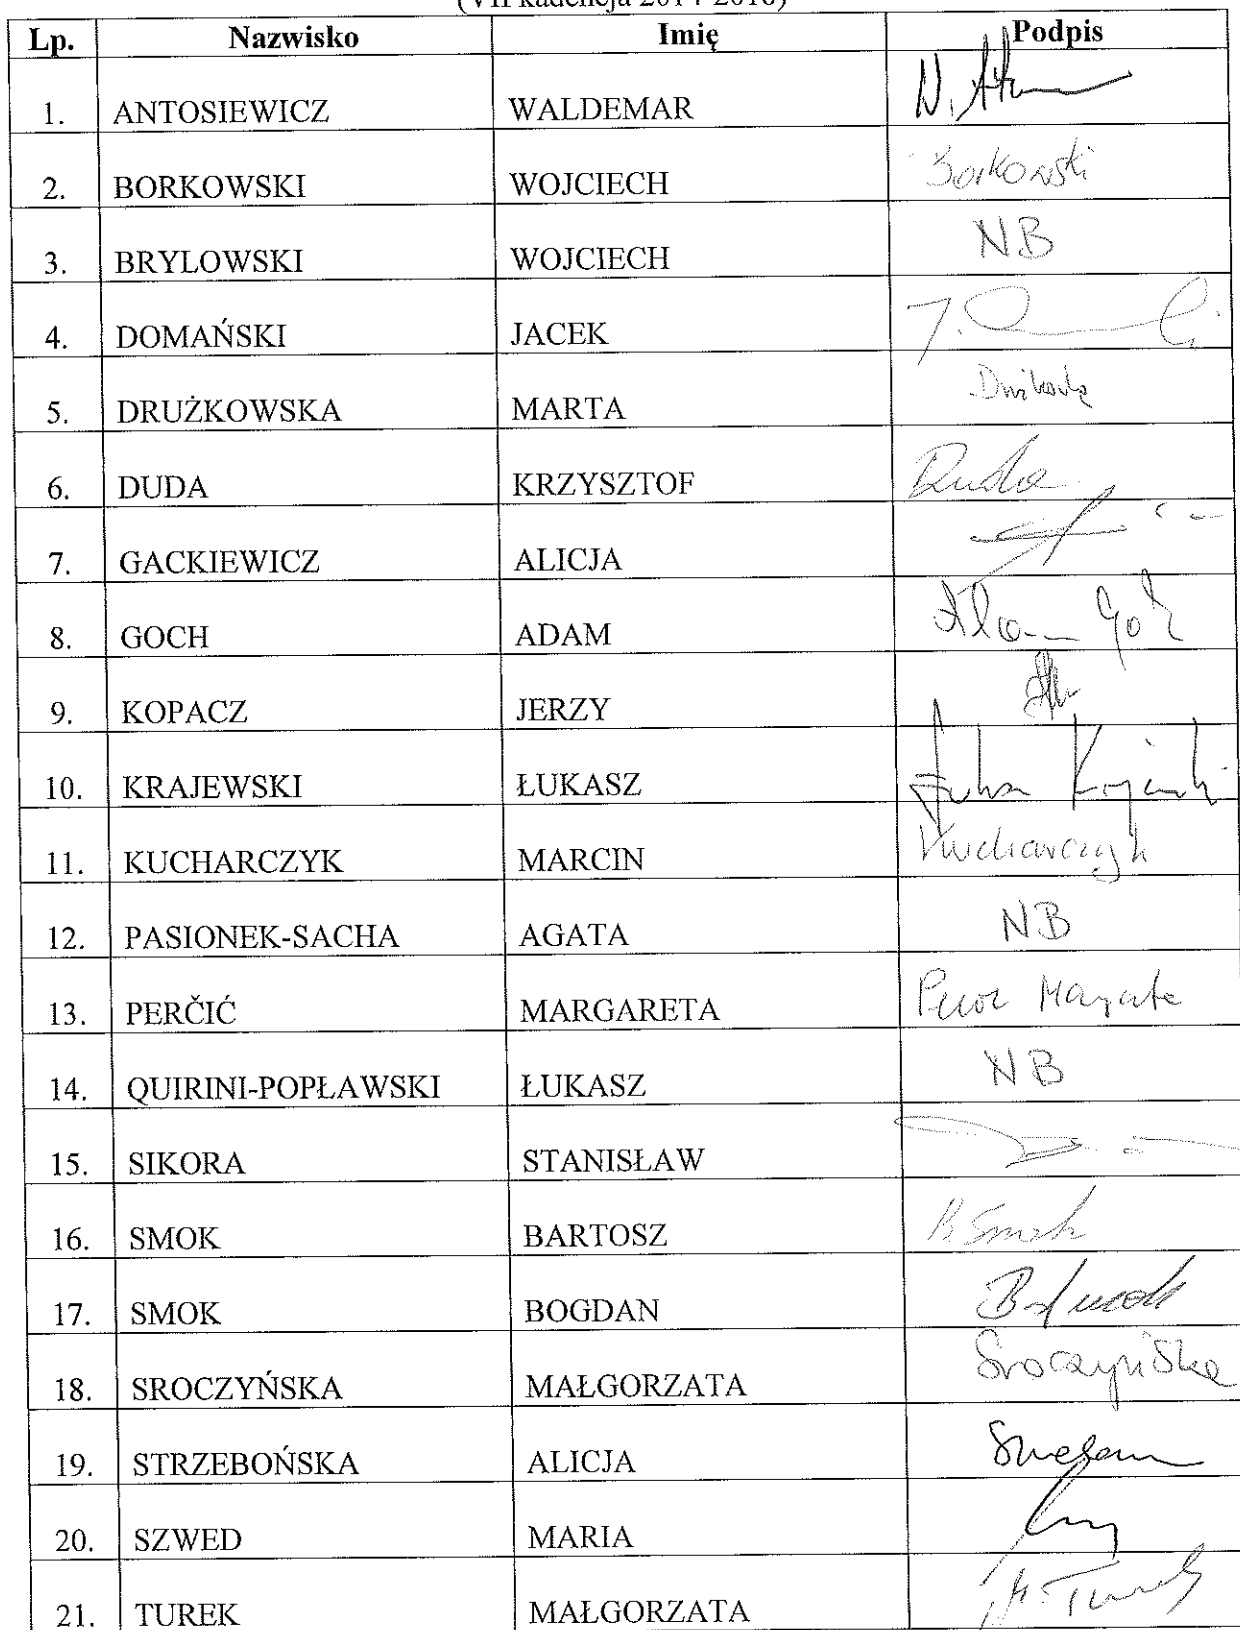 (VII kadencja 2014-2018)
Lp. Nazwisko Imię Podpis
1. ANTOSIEWICZ WALDEMAR
2. BORKOWSKI WOJCIECH Borkowski
3. BRYLOWSKI WOJCIECH NB
4. DOMAŃSKI JACEK
5. DRUŻKOWSKA MARTA
6. DUDA KRZYSZTOF Duda
7. GACKIEWICZ ALICJA
8. GOCH ADAM Adam Goch
9. KOPACZ JERZY
10. KRAJEWSKI ŁUKASZ
11. KUCHARCZYK MARCIN Kucharczyk
12. PASIONEK-SACHA AGATA NB
13. PERČIĆ MARGARETA
14. QUIRINI-POPŁAWSKI ŁUKASZ NB
15. SIKORA STANISŁAW
16. SMOK BARTOSZ B. Smok
17. SMOK BOGDAN
18. SROCZYŃSKA MAŁGORZATA Sroczyńska
19. STRZEBOŃSKA ALICJA
20. SZWED MARIA
21. TUREK MAŁGORZATA M. Turek